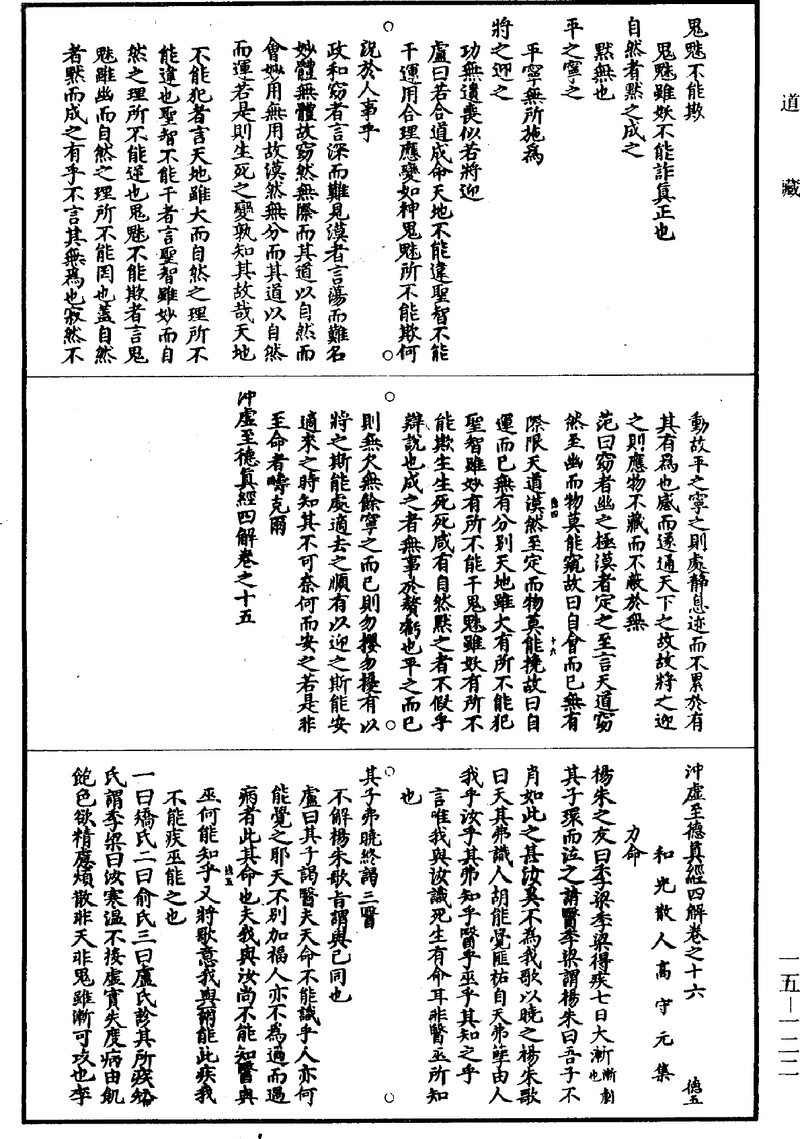 道藏
鬼魅不能欺
鬼魅雖妖不能詐真正也
自然者默之成之
默無也
平之寧之
平寧無所施為
將之迎之
功無遺喪似若將迎
盧曰若合道成命天地不能違聖智不能
干運用合理應變如神鬼魅所不能欺何
說於人事乎
政和窈者言深而難見漠者言蕩而難名
妙體無體故窈然無際而其道以自然而
會妙用無用故漠然無分而其道以自然
而運若是則生死之變孰知其故哉天地
不能犯者言天地雖大而自然之理所不
能違也聖智不能干者言聖智雖妙而自
然之理所不能逆也鬼魅不能欺者言鬼
魅雖幽而自然之理所不能罔也蓋自然
者默而成之有乎不言其無為也寂然不
動故平之寧之則處靜息迹而不累於有
其有為也感而遂通天下之故故將之迎
之則應物不藏而不蔽於無
范曰窈者幽之極漠者定之至言天道窈
然至幽而物莫能窺故曰自會而已無有
際限天道漠然至定而物莫能撓故曰自
運而已無有分別天地雖大有所不能犯
聖智雖妙有所不能干鬼魅雖妖有所不
能欺生生死死咸有自然默之者不假乎
辯說也成之者無事於贅虧也平之而已
則無欠無餘寧之而已則勿攖勿擾有以
將之斯能處適去之順有以迎之斯能安
適來之時知其不可奈何而安之若是非
至命者疇克爾
沖虛至德真經四解卷之十五
沖虛至德真經四解卷之十六
德五
和光散人高守元集
力命
楊朱之友曰季梁季梁得疾七日大漸漸劇也
其子環而泣之請醫季梁謂楊朱曰吾子不
肖如此之甚汝奚不為我歌以曉之楊朱歌
曰天其弗識人胡能覺匪祐自天弗孽由人
我乎汝乎其弗知乎醫乎巫乎其知之乎
言唯我與汝識死生有命耳非醫巫所知
也
其子弗曉終謁三醫
不解楊朱歌旨謂與己同也
盧曰其子謁醫夫天命不能識乎人亦何
能覺之耶天不別加福人亦不為過而遇
病者此其命也夫我與汝尚不能知醫與
巫何能知乎又將歌意我與爾能此疾我
不能疾巫能之也
一曰矯氏二曰俞氏三曰盧氏診其所疾矯
氏謂季梁曰汝寒溫不接虛實失度病由飢
飽色欲精慮煩散非天非鬼雖漸可攻也季
一五—一二二